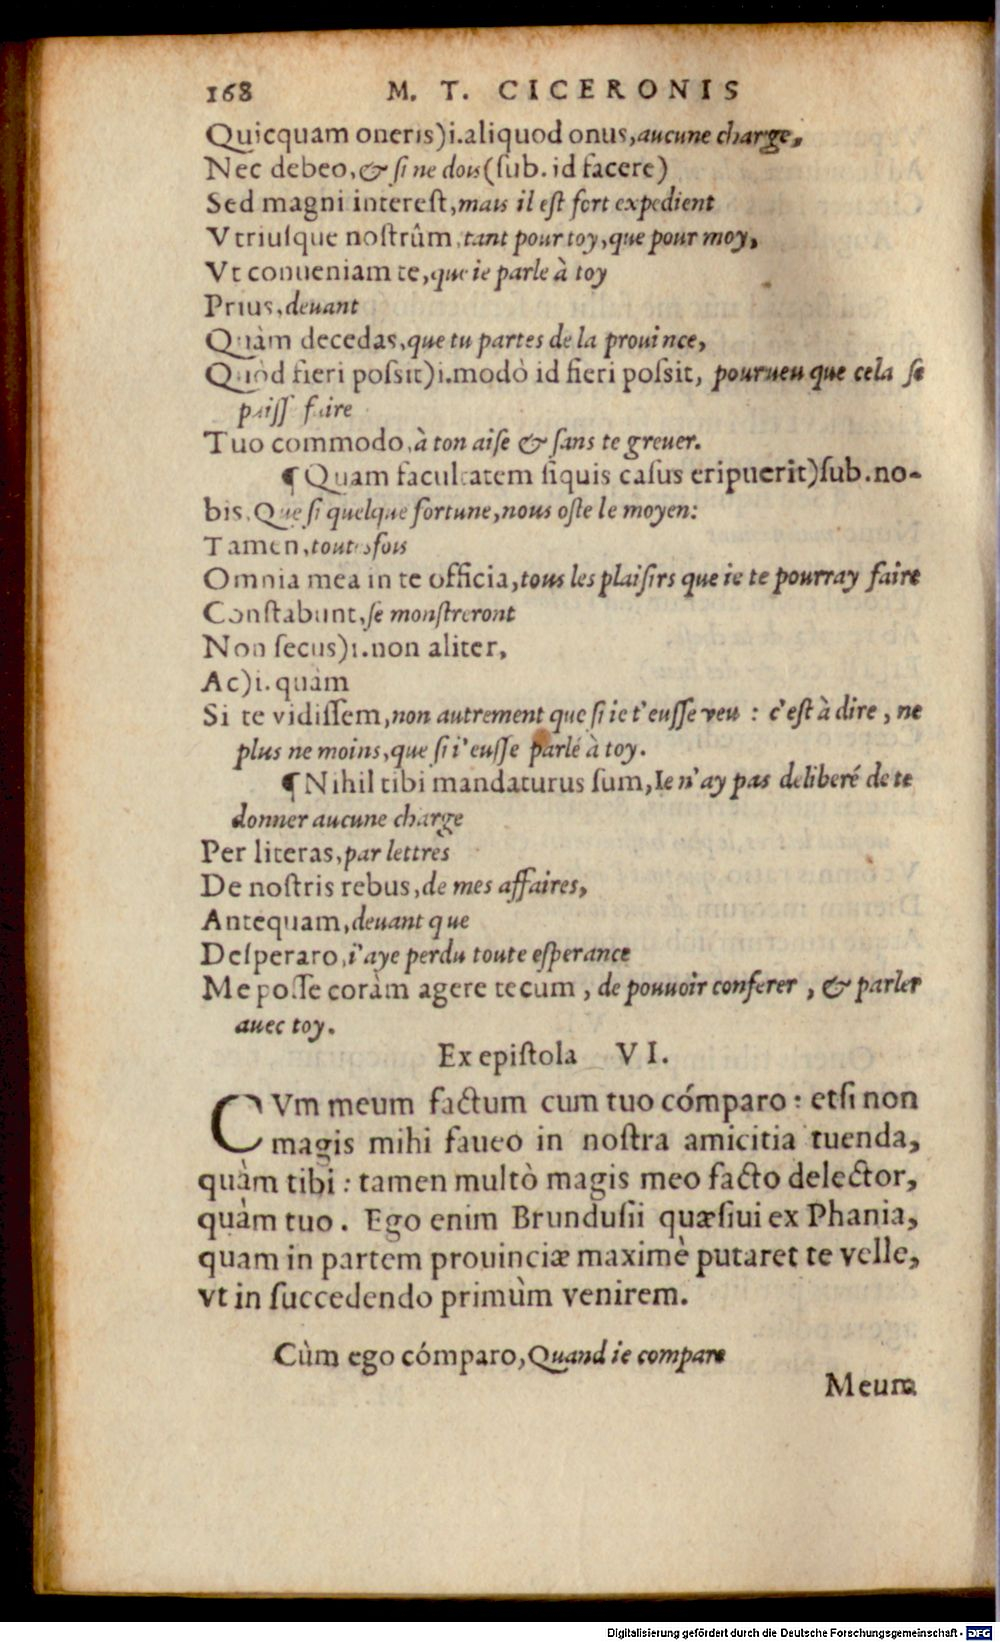 168 M. T. CICERONIS
Quicquam oneris)i.aliquod onus,aucune charge,
Nec debeo,& si ne dois(ſub. id facere)
Sed magni intereſt,mais il eſt fort expedient
Vtriuſque noſtrûm,tant pour toy,que pour moy,
Vt conueniam te,que ie parle à toy
Prius,deuant
Quàm decedas,que tu partes de la prouince,
Quòd fieri poſsit)i.modò id fieri poſsit, pourueu que cela ſe
puiſſ faire
Tuo commodo,à ton aiſe & ſans te greuer.
¶ Quam facultatem ſiquis caſus eripuerit)ſub.no-
bis,Que ſi quelque fortune,nous oſte le moyen:
Tamen,toutesfois
Omnia mea in te officia,tous les plaiſirs que ie te pourray faire
Conſtabunt,ſe monſtreront
Non ſecus)i.non aliter,
Ac)i. quàm
Si te vidiſſem,non autrement que ſi ie t'euſſe veu : c'eſt à dire, ne
plus ne moins,que ſi i'euſſe parlé à toy.
¶ Nihil tibi mandaturus ſum,Ie n'ay pas deliberé de te
donner aucune charge
Per literas,par lettres
De noſtris rebus,de mes affaires,
Antequam,deuant que
Deſperaro,i'aye perdu toute eſperance
Me poſſe coràm agere tecum, de pouuoir conferer, & parler
auec toy.
Ex epiſtola VI.
CVm meum factum cum tuo cómparo: etſi non
magis mihi faueo in noſtra amicitia tuenda,
quàm tibi: tamen multò magis meo facto delector,
quàm tuo. Ego enim Brunduſii quæſiui ex Phania,
quam in partem prouinciæ maximè putaret te velle,
vt in ſuccedendo primùm venirem.
Cùm ego cómparo,Quand ie compare
Meum
Digitalisierung gefördert durch die Deutsche Forschungsgemeinschaft - DFG